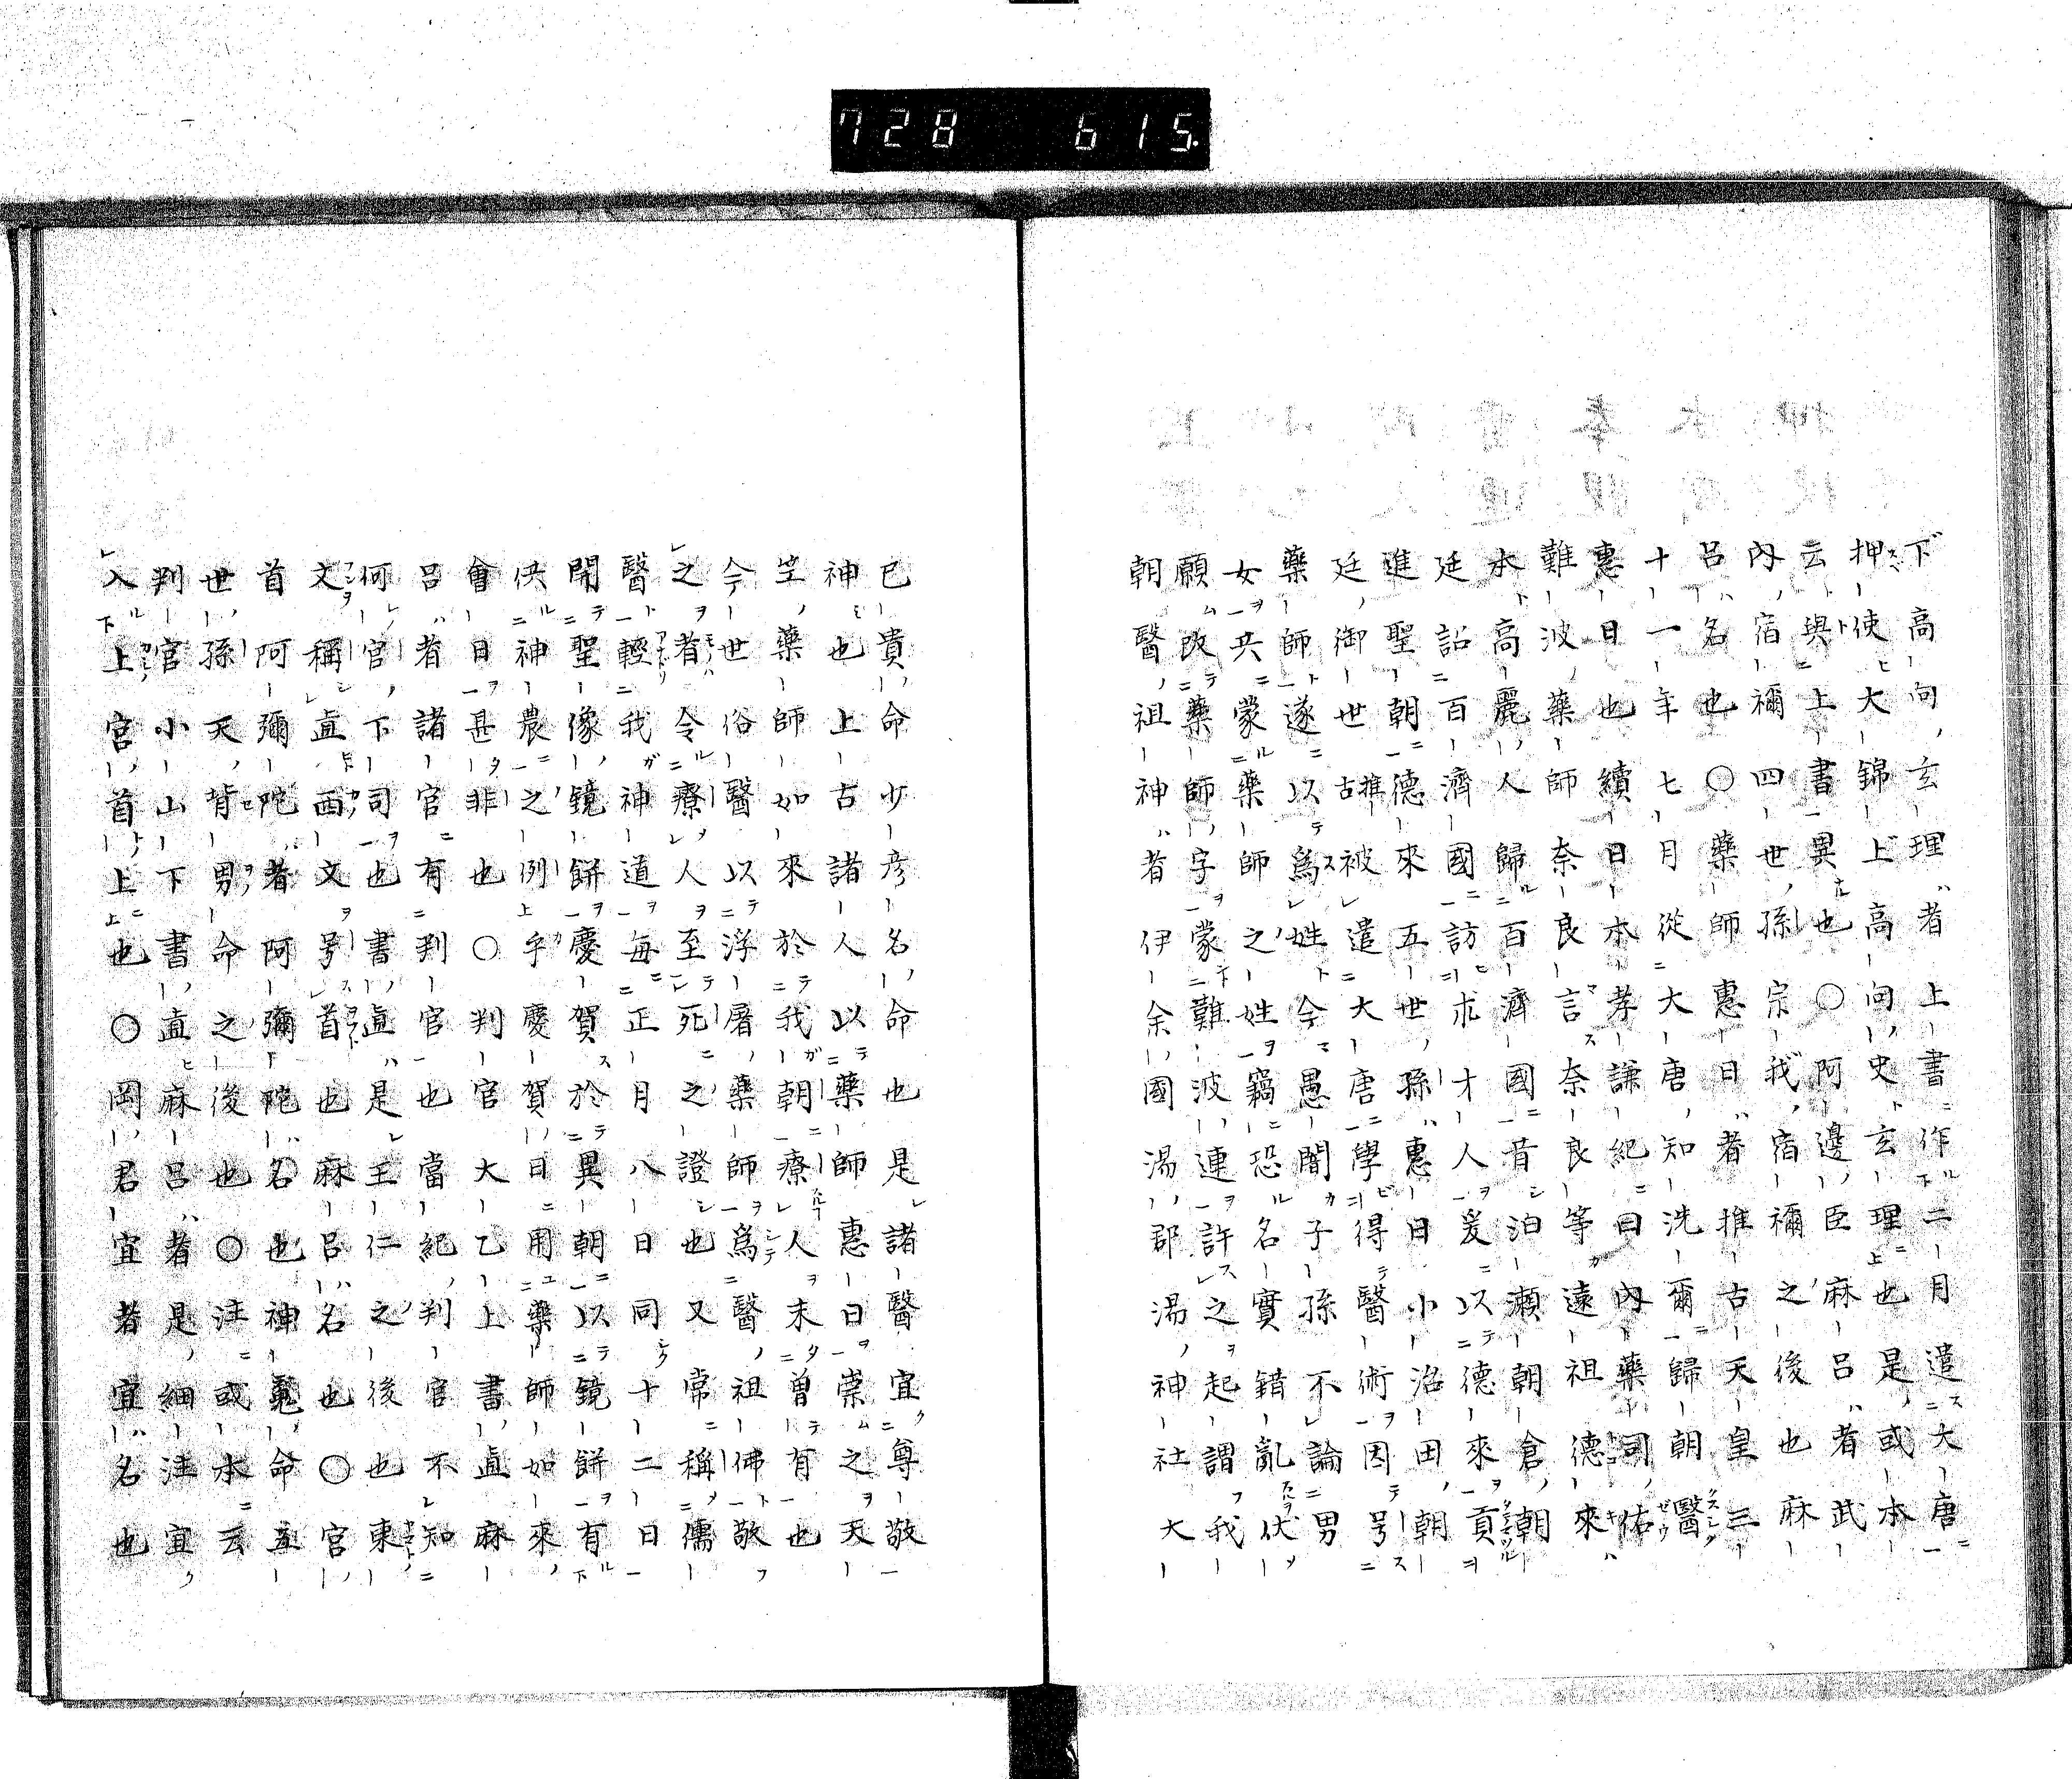 728 615.
下高向玄理者上書作二月遣大唐
押使大錦上高向史玄理也是或本
云與上書異也○阿邊臣麻呂者武
內宿禰四世孫宗我宿禰之後也麻
呂名也○藥師惠日者推古天皇三
十一年七月從大唐知洗爾歸朝醫
惠日也續日本孝謙紀曰內藥司佑
難波藥師奈良言奈良等遠祖德來
本高麗人歸百濟國昔泊瀨朝倉朝
廷詔百濟國訪求才人爰以德來貢
進聖朝德來五世孫惠日小治田朝
廷御世推古被遣大唐學得醫術因号
藥師遂以為姓今愚闇子孫不論男
女共蒙藥師之姓竊恐名實錯亂伏
願改藥師字蒙難波連許之起謂我
朝醫祖神者伊余國湯郡湯神社大
已貴命少彦名命也是諸醫宜尊敬
神也上古諸人以藥師惠日崇之天
竺藥師如來於我朝療人未曽有也
今世俗醫以浮屠藥師為醫祖佛敬
之者令療人至死之證也又常稱儒
醫輕我神道每正月八日同十二日
開聖像鏡餅慶賀於異朝以鏡餅有
供神農之例乎慶賀日用藥師如來
會日甚非也○判官大乙上書直麻
呂者諸官有判官也當紀判官不知
何官下司也書直是王仁之後也東
文稱直西文号首也麻呂名也○宮
首阿彌陀者阿彌陀名也神魂命五
世孫天背男命之後也○注或本云
判官小山下書直麻呂者是細注宜
入上宮首上也○岡君宜者宜名也